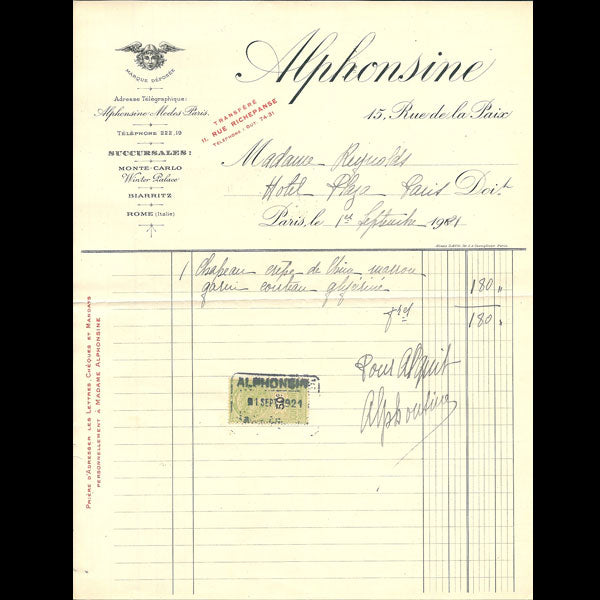 MARQUE DÉPOSÉE
Adresse Télégraphique:
Alphonsine-Modes Paris.
TÉLÉPHONE 222,19
SUCCURSALES:
MONTE-CARLO
Winter Palace
BIARRITZ
ROME (Italie)
Alphonsine
15, Rue de la Paix
TRANSFÉRÉ
11, RUE RICHEPANSE
TÉLÉPHONE: GUT. 74-31
Madame Reynolds
Hotel Plaza Paris Doit
Paris, le 1er Septembre 1921
1 Chapeau crêpe de Chine marron
garni couteau glycériné 180 "
frcs 180 "
Pour Acquit
Alphonsine
ALPHONSINE
1 SEPT 1921
50c
PRIÈRE D'ADRESSER LES LETTRES, CHÈQUES ET MANDATS
PERSONNELLEMENT À MADAME ALPHONSINE